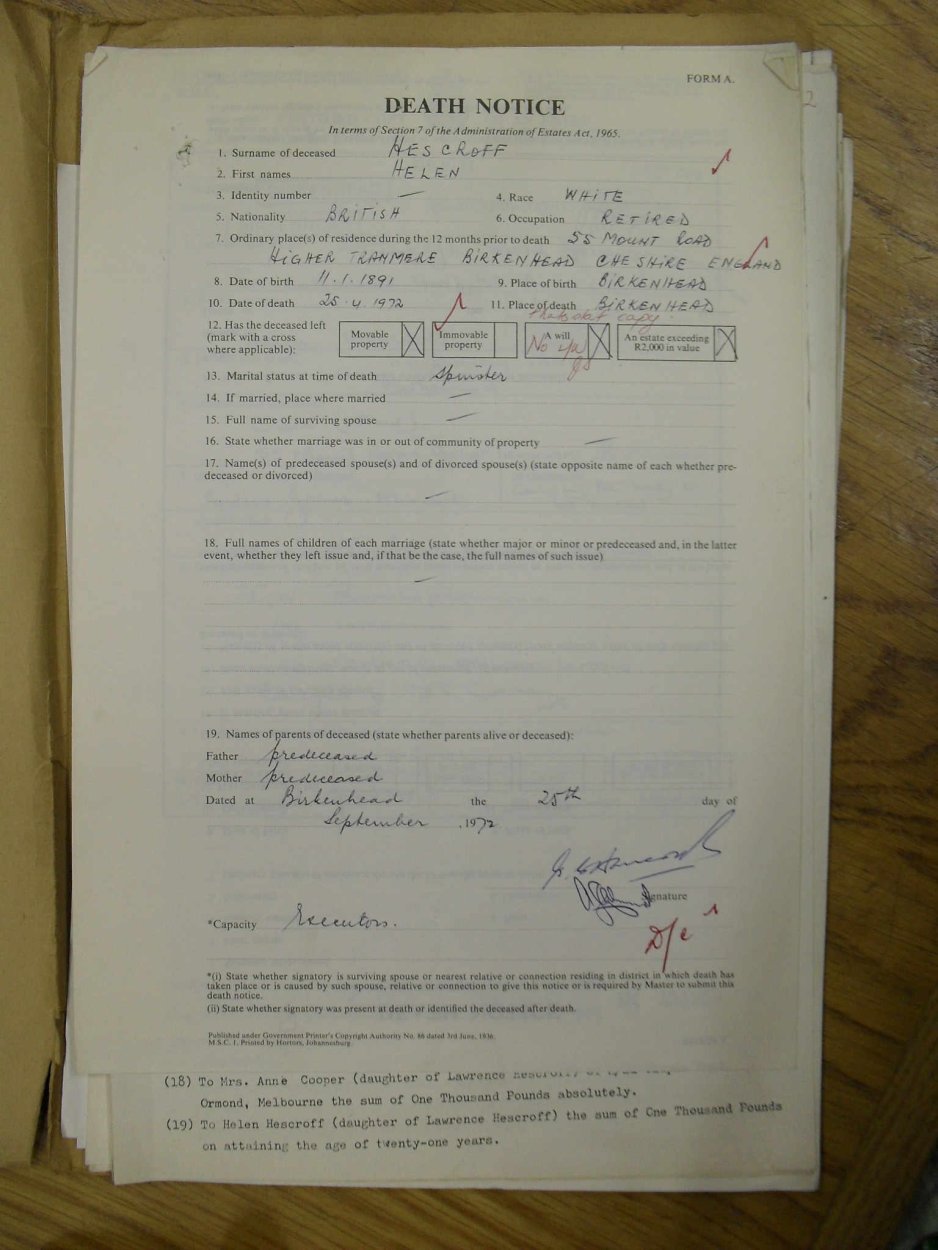 FORM A.
DEATH NOTICE
In terms of Section 7 of the Administration of Estates Act, 1965.
1. Surname of deceased HESCROFF
2. First names HELEN
3. Identity number — 4. Race WHITE
5. Nationality BRITISH 6. Occupation RETIRED
7. Ordinary place(s) of residence during the 12 months prior to death 55 MOUNT ROAD
HIGHER TRANMERE BIRKENHEAD CHESHIRE ENGLAND
8. Date of birth 11.1.1891 9. Place of birth BIRKENHEAD
10. Date of death 25.4.1972 11. Place of death BIRKENHEAD
copy.
12. Has the deceased left
(mark with a cross
where applicable):
Movable
property
Immovable
property
A will
No
An estate exceeding
R2,000 in value
13. Marital status at time of death Spinster
14. If married, place where married —
15. Full name of surviving spouse —
16. State whether marriage was in or out of community of property —
17. Name(s) of predeceased spouse(s) and of divorced spouse(s) (state opposite name of each whether pre-
deceased or divorced)
—
18. Full names of children of each marriage (state whether major or minor or predeceased and, in the latter
event, whether they left issue and, if that be the case, the full names of such issue)
—
19. Names of parents of deceased (state whether parents alive or deceased):
Father predeceased
Mother predeceased
Dated at Birkenhead the 25th day of
September , 1972
Signature
*Capacity Executors.
D/c
*(i) State whether signatory is surviving spouse or nearest relative or connection residing in district in which death has
taken place or is caused by such spouse, relative or connection to give this notice or is required by Master to submit this
death notice.
(ii) State whether signatory was present at death or identified the deceased after death.
Published under Government Printer's Copyright Authority No. 86 dated 3rd June, 1936
M.S.C. 1. Printed by Hortors, Johannesburg.
(18) To Mrs. Anne Cooper (daughter of Lawrence Hescroff) of
Ormond, Melbourne the sum of One Thousand Pounds absolutely.
(19) To Helen Hescroff (daughter of Lawrence Hescroff) the sum of One Thousand Pounds
on attaining the age of twenty-one years.